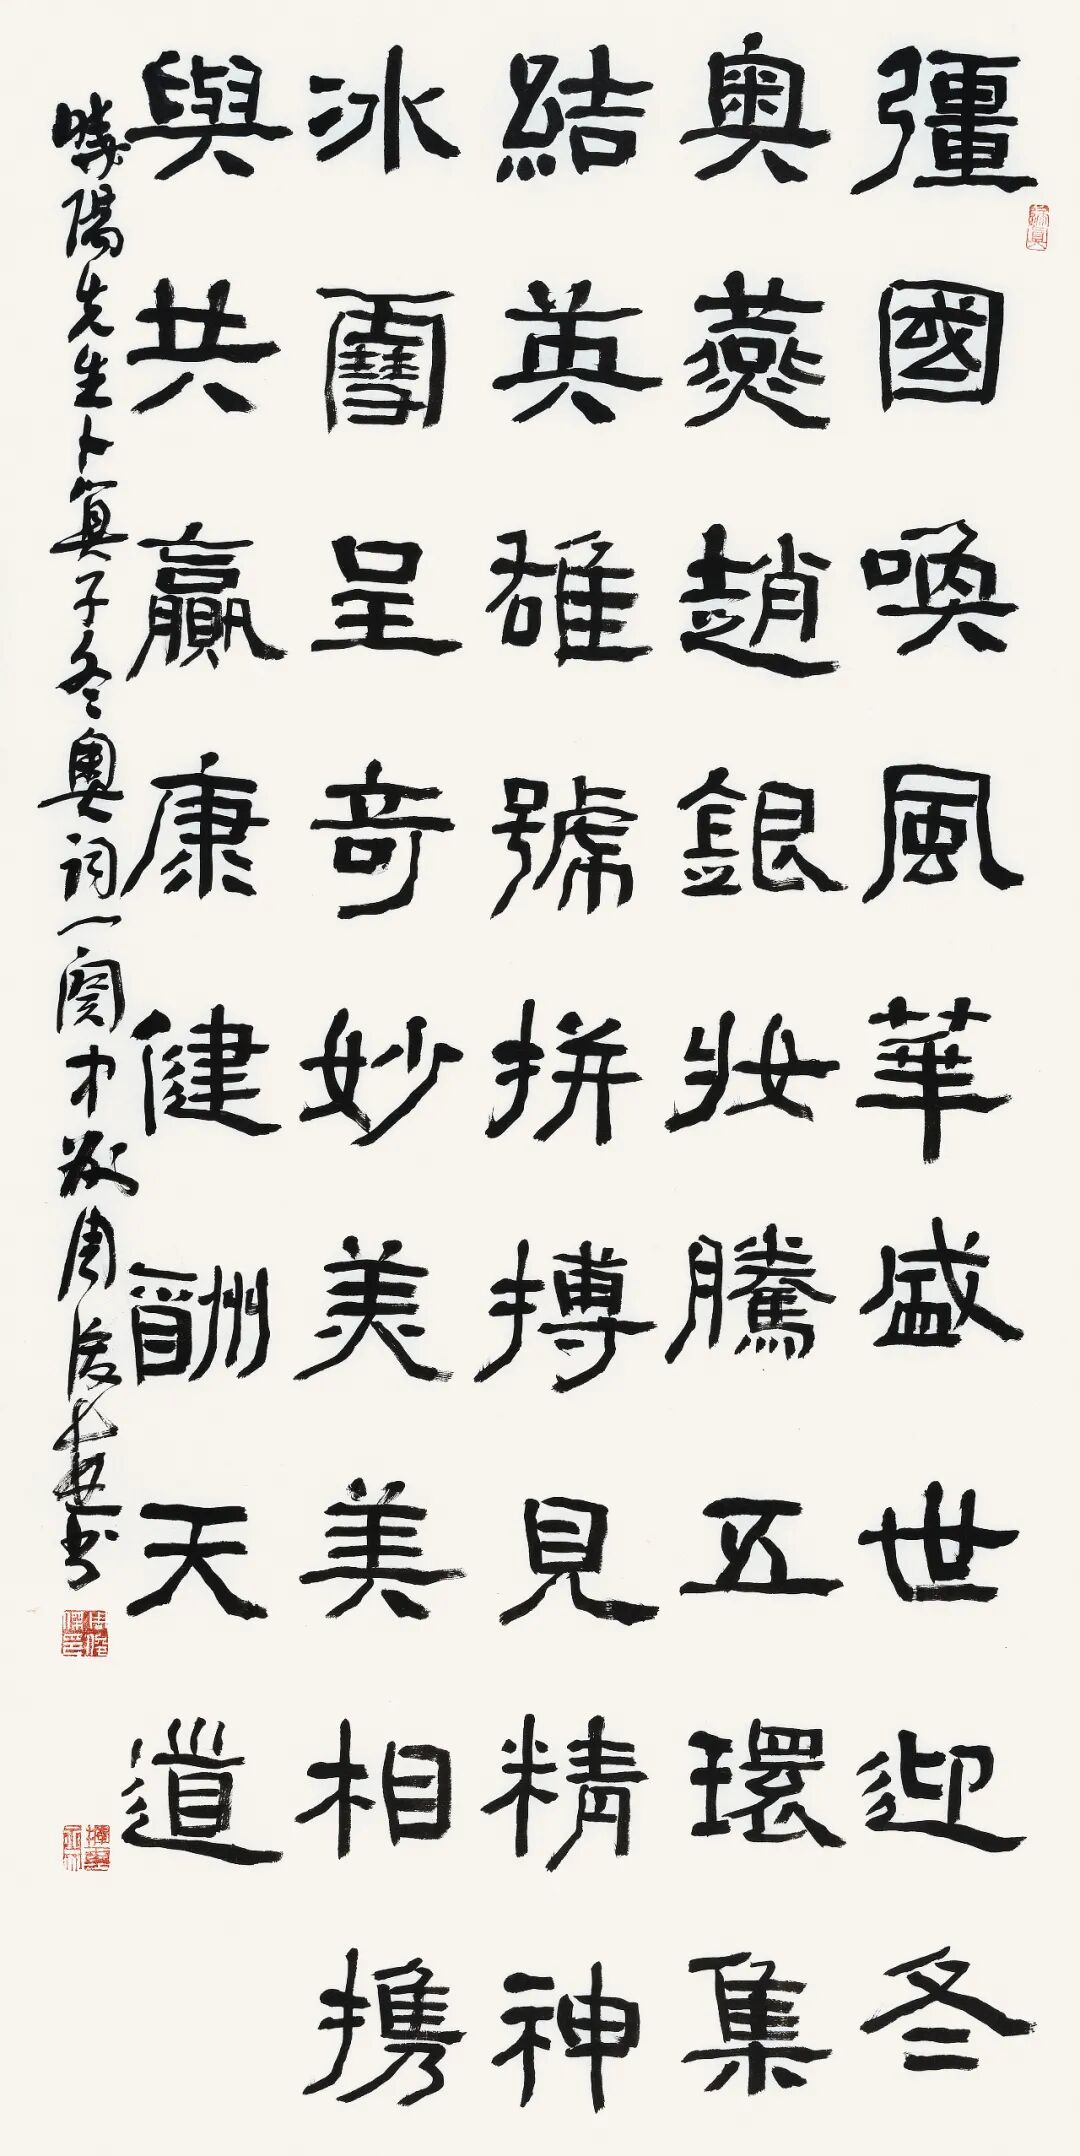 彊國喚風華盛世迎冬
奧燕趙銀妝騰五環集
結英雄號拼搏見精神
冰雪呈奇妙美美相携
與共贏康健酬天道
曉陽先生卜算子冬奧詞一闋中周俊杰書